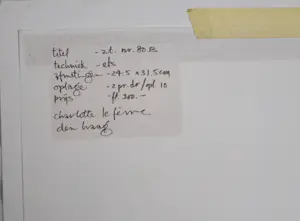 titel - z.t. nr. 80 B
techniek - ets
afmetingen - 24.5 x 31.5 cm
oplage - 2 pr. dr/opl. 10
prijs - fl. 300.-
charlotte le fèvre
den haag